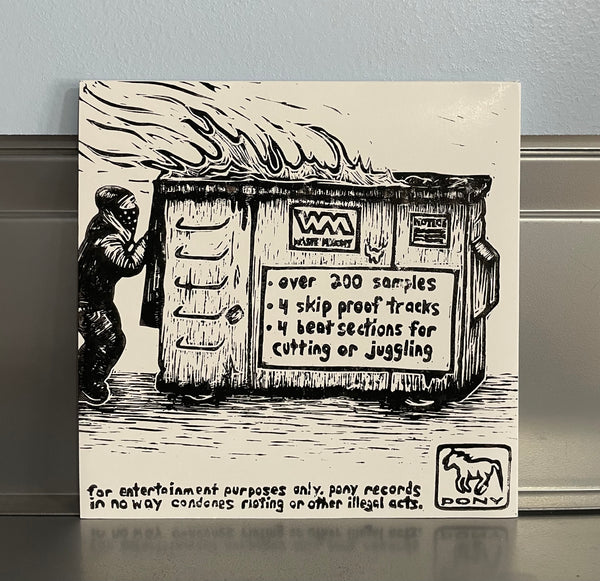 WM
WASTE MGMNT
NOTICE
· over 200 samples
· 4 skip proof tracks
· 4 beat sections for
cutting or juggling
for entertainment purposes only. pony records
in no way condones rioting or other illegal acts.
PONY